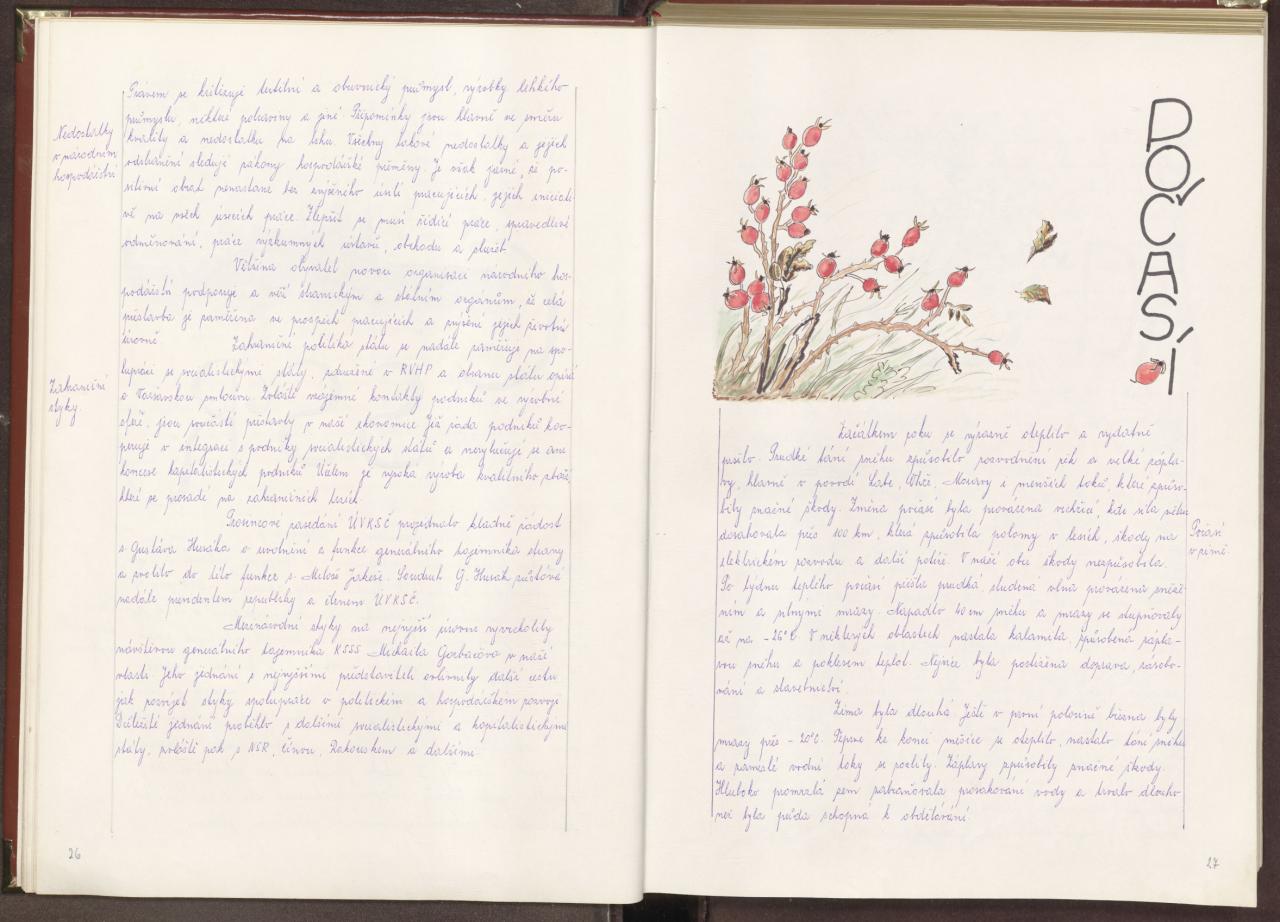 Právem se kritizuje textilní a obuvnický průmysl, výrobky lehkého
průmyslu, některé potraviny a jiné. Připomínky jsou hlavně ve směru
Nedostatky
v národním
hospodářství
kvality a nedostatku na trhu. Všechny takové nedostatky a jejich
odstranění sledují zákony hospodářské přeměny. Je však jasné, že po-
sitivní obrat nenastane bez zvýšeného úsilí pracujících, jejich iniciati-
vě na všech úsecích práce. Zlepšit se musí řídící práce, spravedlivé
odměňování, práce výzkumných ústavů, obchodu a služeb.
Většina obyvatel novou organisaci národního hos-
podářství podporuje a věří stranickým a státním orgánům, že celá
přestavba je zaměřena ve prospěch pracujících a zvýšení jejich životní
úrovně.
Zahraniční politika státu se nadále zaměřuje na spo-
Zahraniční
styky.
lupráci se socialistickými státy, sdružené v RVHP a obranu státu opírá
o Varšavskou smlouvu. Zvláště vzájemné kontakty podniků ve výrobní
sféře, jsou součástí přestavby v naší ekonomice. Již řada podniků koo-
peruje v integraci s podniky socialistických států a nevylučují se ani
koncese kapitalistických podniků. Účelem je vysoká výroba kvalitního zboží,
které se prosadí na zahraničních trzích.
Prosincové zasedání ÚVKSČ projednalo kladně žádost
s. Gustáva Husáka o uvolnění z funkce generálního tajemníka strany
a zvolilo do této funkce s. Miloše Jakeše. Soudruh G. Husák zůstává
nadále presidentem republiky a členem ÚVKSČ.
Mezinárodní styky na nejvyšší úrovni vyvrcholily
návštěvou generálního tajemníka KSSS Michaila Gorbačova v naší
vlasti. Jeho jednání s nejvyššími představiteli ovlivnily další cestu
jak rozvíjet styky, spolupráce v politickém a hospodářském rozvoji.
Důležité jednání proběhlo s dalšími socialistickými a kapitalistickými
státy, zvláště pak s NSR, Čínou, Rakouskem a dalšími.
26
POČASÍ
Začátkem roku se výrazně oteplilo a vydatně
pršelo. Prudké tání sněhu způsobilo rozvodnění řek a velké zápla-
vy, hlavně v povodí Labe, Ohře, Moravy i menších toků, které způso-
bily značné škody. Změna počasí byla provázena vichřicí, kde síla větru
dosahovala přes 100 km, která způsobila polomy v lesích, škody na
Počasí
v zimě.
elektrickém rozvodu a další potíže. V naší obci škody nezpůsobila.
Po týdnu teplého počasí přišla prudká studená vlna provázená sněže-
ním a silnými mrazy. Napadlo 40 cm sněhu a mrazy se stupňovaly
až na -26°C. V některých oblastech nastala kalamita, způsobená zápla-
vou sněhu a poklesem teplot. Nejvíce byla postižena doprava, zásobo-
vání a stavebnictví.
Zima byla dlouhá. Ještě v první polovině března byly
mrazy přes -20°C. Teprve ke konci měsíce se oteplilo, nastalo tání sněhu
a zamrzlé vodní toky se rozlily. Záplavy způsobily značné škody.
Hluboko promrzlá zem zabraňovala prosakování vody a trvalo dlouho
než byla půda schopná k obdělávání.
27